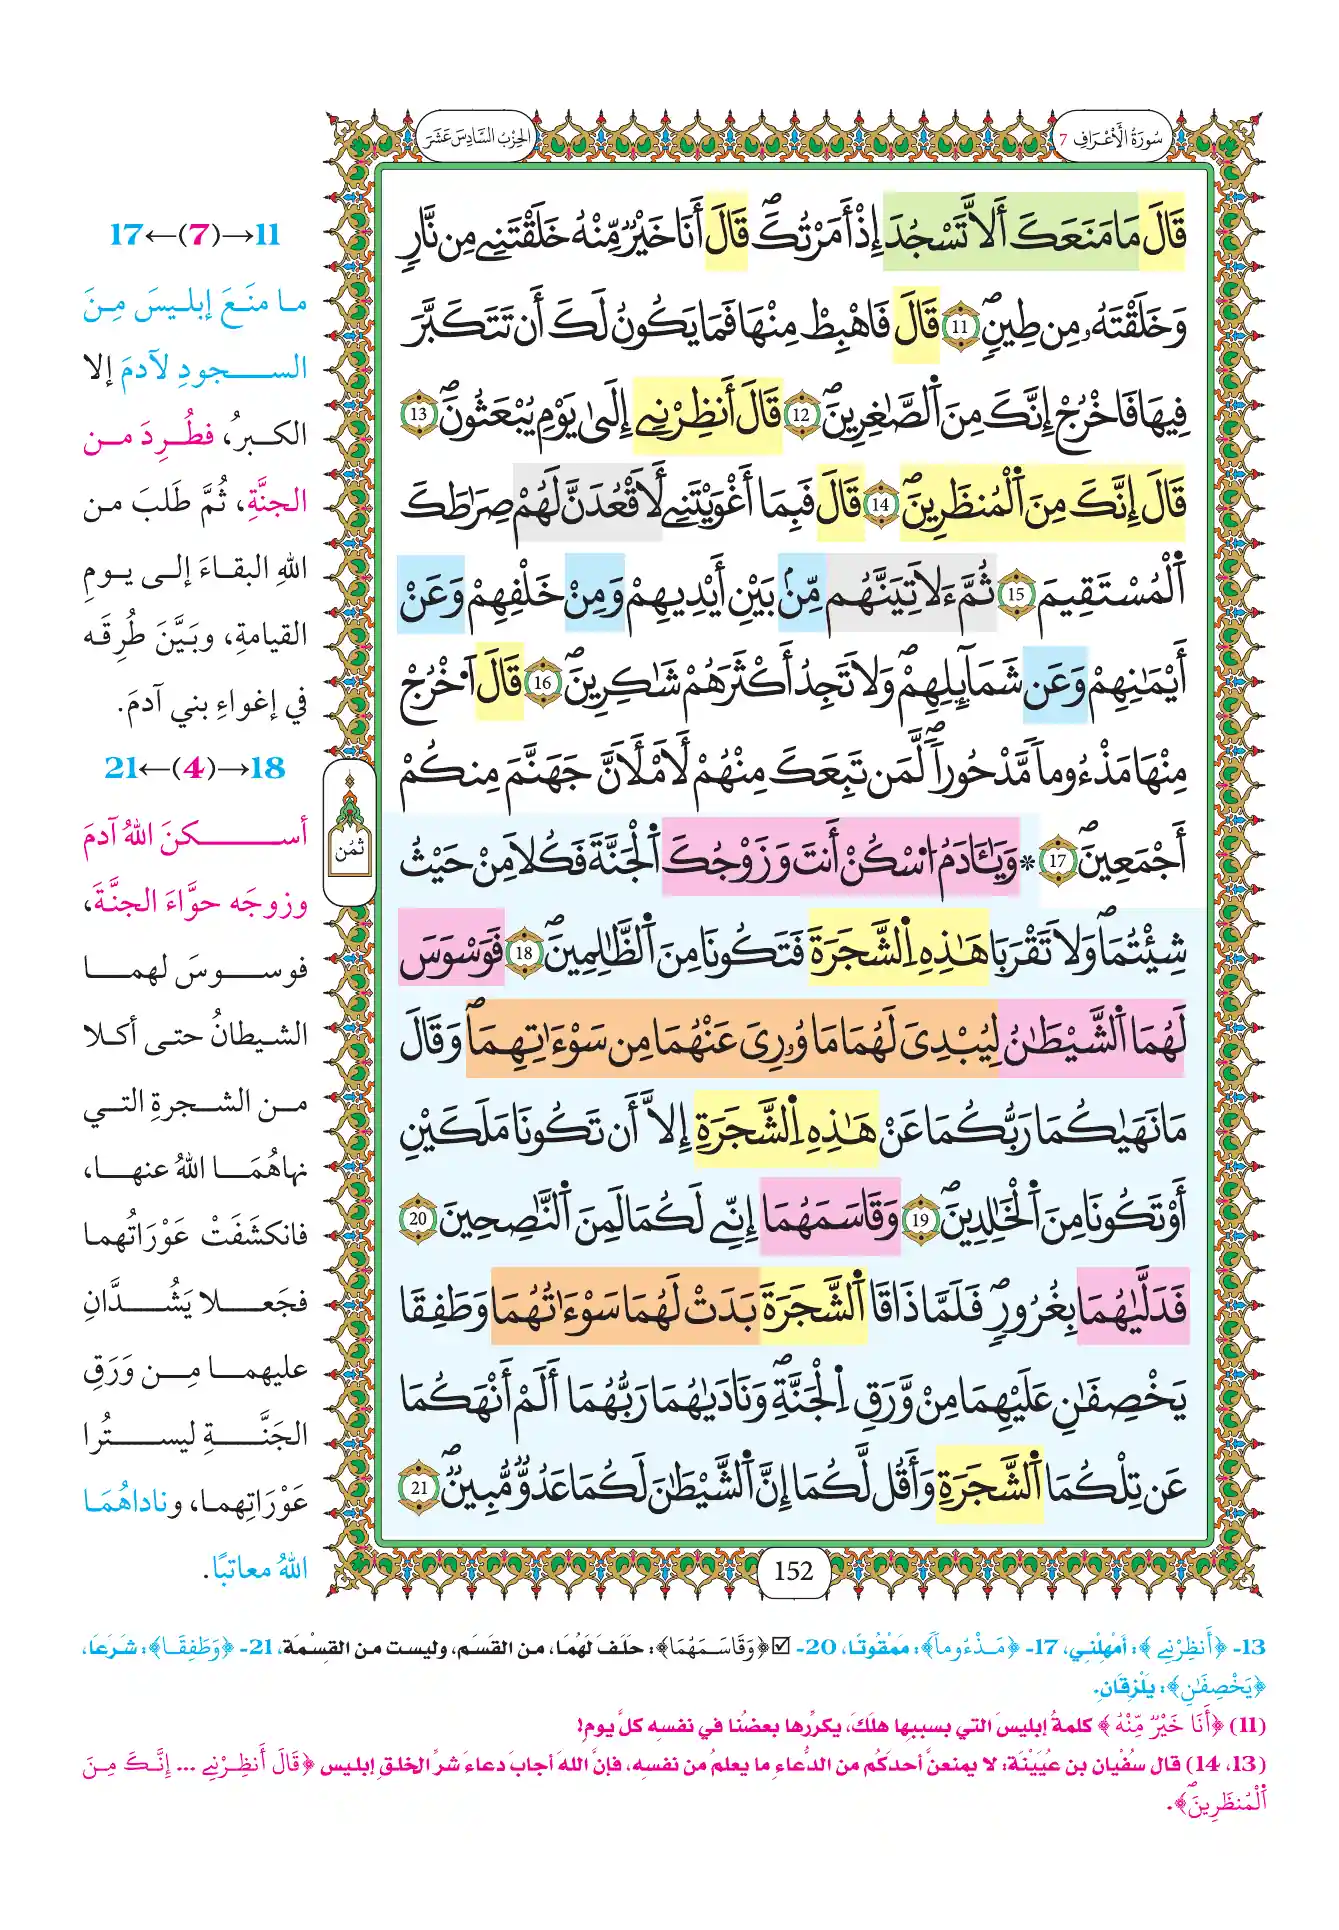 سُورَةُ الْأَعْرَافِ 7
الحِزْبُ السَّادِسَ عَشَرَ
قَالَ مَا مَنَعَكَ أَلَّا تَسْجُدَ إِذْ أَمَرْتُكَۖ قَالَ أَنَا خَيْرٌ مِّنْهُ خَلَقْتَنِے مِن نَّارٍ
وَخَلَقْتَهُۥ مِن طِينٍۖ 11 قَالَ فَاهْبِطْ مِنْهَا فَمَا يَكُونُ لَكَ أَن تَتَكَبَّرَ
فِيهَا فَاخْرُجْ إِنَّكَ مِنَ اَ۬لصَّٰغِرِينَۖ 12 قَالَ أَنظِرْنِے إِلَىٰ يَوْمِ يُبْعَثُونَۖ 13
قَالَ إِنَّكَ مِنَ اَ۬لْمُنظَرِينَۖ 14 قَالَ فَبِمَا أَغْوَيْتَنِے لَأَقْعُدَنَّ لَهُمْ صِرَٰطَكَ
اَ۬لْمُسْتَقِيمَ 15 ثُمَّ ءَلَاتِيَنَّهُم مِّنۢ بَيْنِ أَيْدِيهِمْ وَمِنْ خَلْفِهِمْ وَعَنْ
أَيْمَٰنِهِمْ وَعَن شَمَآئِلِهِمْۖ وَلَا تَجِدُ أَكْثَرَهُمْ شَٰكِرِينَۖ 16 قَالَ اَ۟خْرُجْ
مِنْهَا مَذْءُوماٗ مَّدْحُوراٗۖ لَّمَن تَبِعَكَ مِنْهُمْ لَأَمْلَأَنَّ جَهَنَّمَ مِنكُمْ
أَجْمَعِينَۖ 17 * وَيَٰـَٔادَمُ اُ۟سْكُنْ أَنتَ وَزَوْجُكَ اَ۬لْجَنَّةَ فَكُلَا مِنْ حَيْثُ
شِئْتُمَاۖ وَلَا تَقْرَبَا هَٰذِهِ اِ۬لشَّجَرَةَ فَتَكُونَا مِنَ اَ۬لظَّٰلِمِينَۖ 18 فَوَسْوَسَ
لَهُمَا اَ۬لشَّيْطَٰنُ لِيُبْدِيَ لَهُمَا مَا وُۥرِيَ عَنْهُمَا مِن سَوْءَٰتِهِمَاۖ وَقَالَ
مَا نَهَيٰكُمَا رَبُّكُمَا عَنْ هَٰذِهِ اِ۬لشَّجَرَةِ إِلَّا أَن تَكُونَا مَلَكَيْنِ
أَوْ تَكُونَا مِنَ اَ۬لْخَٰلِدِينَۖ 19 وَقَاسَمَهُمَا إِنِّے لَكُمَا لَمِنَ اَ۬لنَّٰصِحِينَ 20
فَدَلَّيٰهُمَا بِغُرُورٍۖ فَلَمَّا ذَاقَا اَ۬لشَّجَرَةَ بَدَتْ لَهُمَا سَوْءَٰتُهُمَا وَطَفِقَا
يَخْصِفَٰنِ عَلَيْهِمَا مِنْ وَّرَقِ اِ۬لْجَنَّةِۖ وَنَادَيٰهُمَا رَبُّهُمَا أَلَمْ أَنْهَكُمَا
عَن تِلْكُمَا اَ۬لشَّجَرَةِ وَأَقُل لَّكُمَا إِنَّ اَ۬لشَّيْطَٰنَ لَكُمَا عَدُوٌّ مُّبِينٌۖ 21
ثُمُن
152
11→(7)←17
ما منَعَ إبليسَ مِنَ
السجودِ لآدمَ إلا
الكبرُ، فطُرِدَ من
الجنَّةِ، ثُمَّ طَلَبَ من
اللهِ البقاءَ إلى يومِ
القيامةِ، وبَيَّنَ طُرقَه
في إغواءِ بني آدمَ.
18→(4)←21
أسكنَ اللهُ آدمَ
وزوجَه حوَّاءَ الجنَّةَ،
فوسوسَ لهما
الشيطانُ حتى أكلا
من الشجرةِ التي
نهاهُمَا اللهُ عنها،
فانكشَفَتْ عَوْرَاتُهما
فجَعلا يَشُدَّانِ
عليهما مِن وَرَقِ
الجَنَّةِ ليستُرا
عَوْرَاتِهما، وناداهُمَا
اللهُ معاتبًا.
13- ﴿أَنظِرْنِے﴾: أمْهِلْنِي، 17- ﴿مَذْءُوماٗ﴾: مَمْقُوتًا، 20- ☑ ﴿وَقَاسَمَهُمَا﴾: حَلَفَ لَهُمَا، من القَسَم، وليست من القِسْمَة، 21- ﴿وَطَفِقَا﴾: شَرَعَا،
﴿يَخْصِفَٰنِ﴾: يَلْزِقَانِ.
(11) ﴿أَنَا خَيْرٌ مِّنْهُ﴾ كلمةُ إبليسَ التي بسببِها هلَكَ، يكرِّرها بعضُنا في نفسِه كلَّ يومٍ!
(13، 14) قال سُفْيان بن عُيَيْنَة: لا يمنعنَّ أحدَكُم من الدُّعاءِ ما يعلمُ من نفسِه، فإنَّ اللهَ أجابَ دعاءَ شرِّ الخلقِ إبليس ﴿قَالَ أَنظِرْنِے ... إِنَّكَ مِنَ
اَ۬لْمُنظَرِينَۖ﴾.